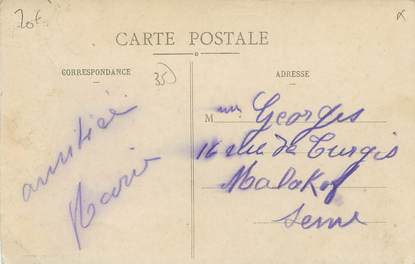 20f
CARTE POSTALE
CORRESPONDANCE
ADRESSE
35
amitiés
Marie
Mme Georges
16 rue de Turgis
Malakof
Seine